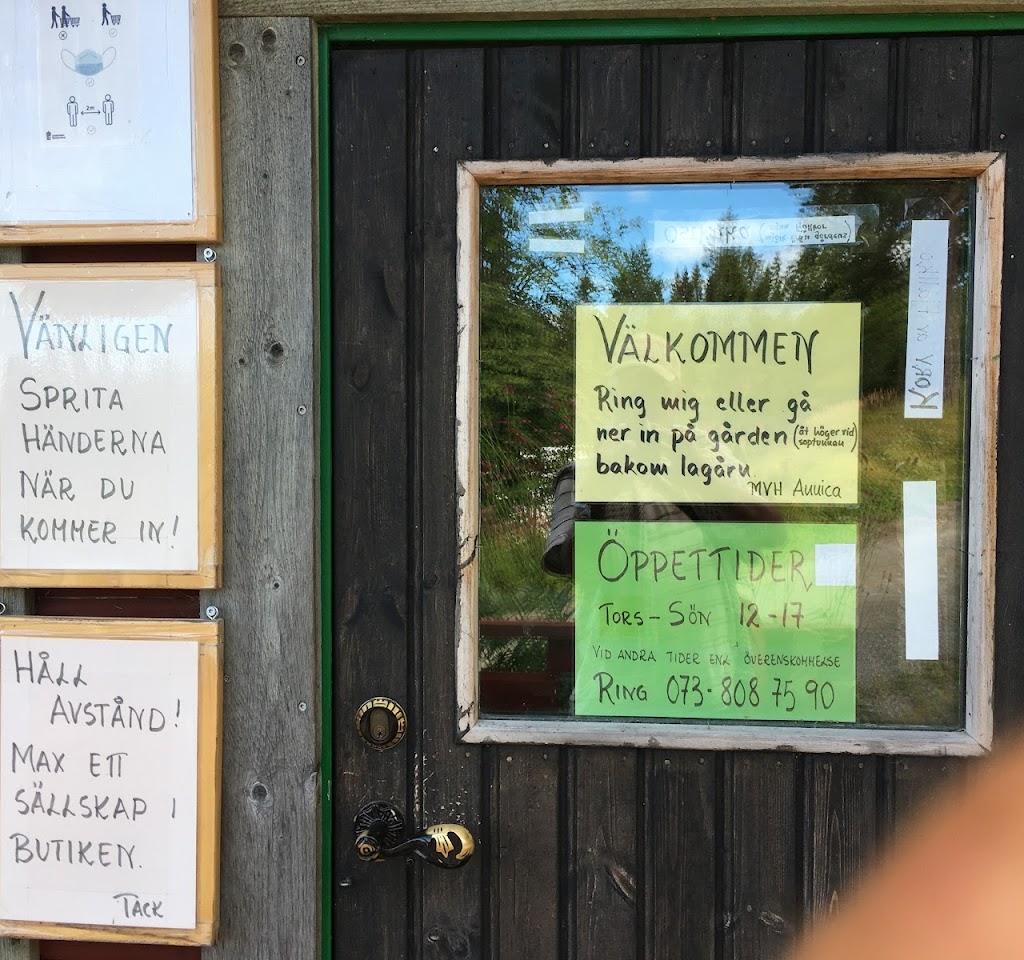 2m
VÄNLIGEN
SPRITA
HÄNDERNA
NÄR DU
KOMMER IN!
HÅLL
AVSTÅND!
MAX ETT
SÄLLSKAP I
BUTIKEN.
TACK
VÄLKOMMEN
Ring mig eller gå
ner in på gården (åt höger vid
soptunnan)
bakom lagårn
MVH Annica
ÖPPETTIDER
TORS - SÖN 12-17
VID ANDRA TIDER ENL ÖVERENSKOMMELSE
RING 073-808 75 90